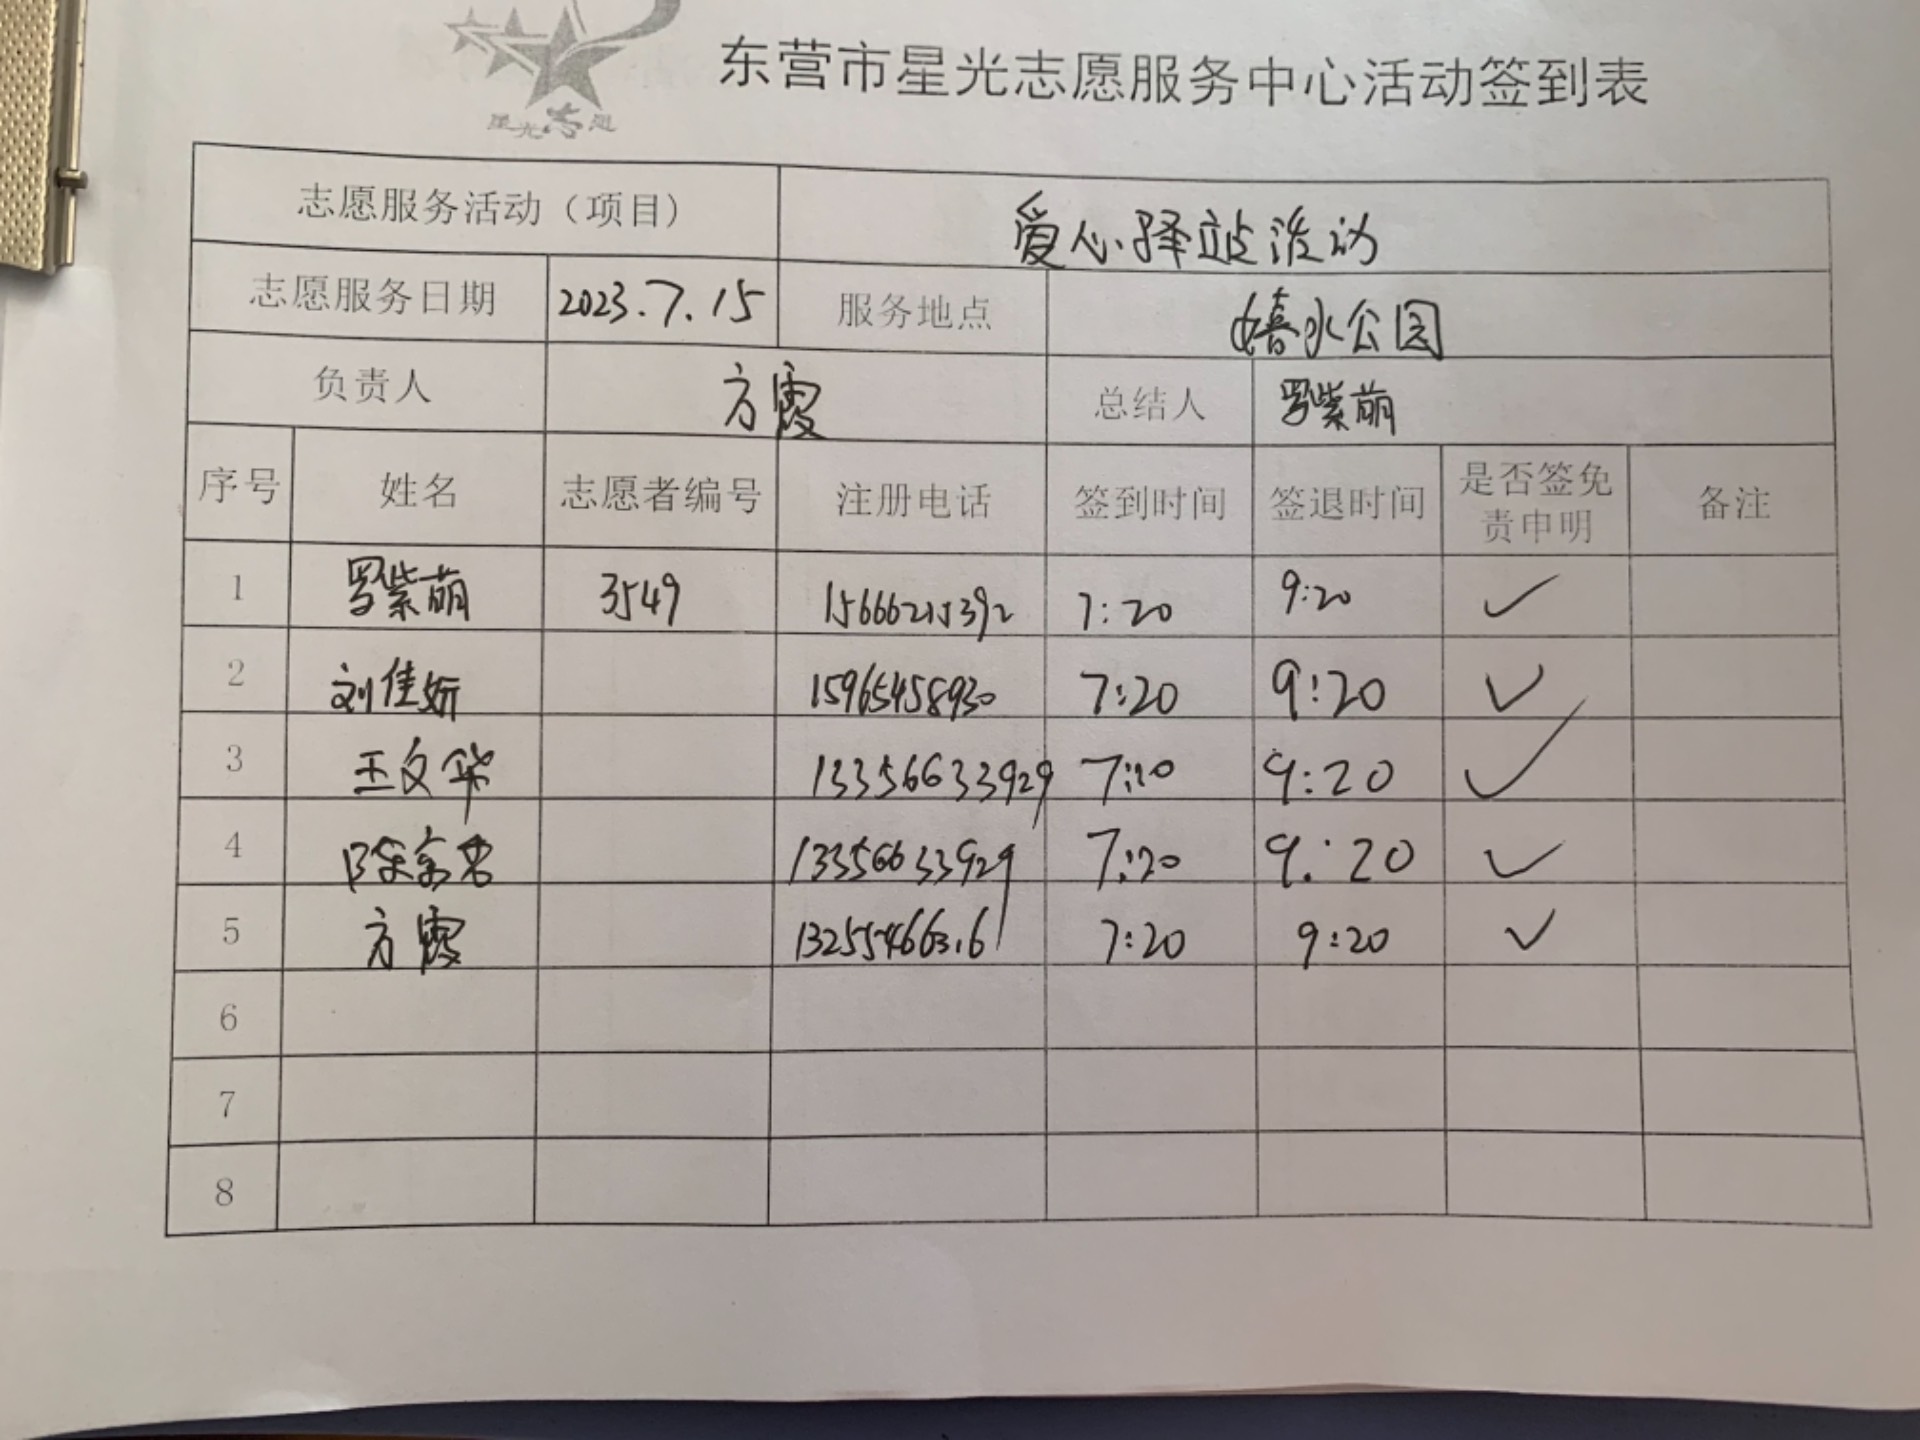 星光志愿
东营市星光志愿服务中心活动签到表
志愿服务活动（项目） 爱心驿站活动
志愿服务日期 2023.7.15 服务地点 嬉水公园
负责人 方霞 总结人 罗紫萌
序号 姓名 志愿者编号 注册电话 签到时间 签退时间 是否签免责申明 备注
1 罗紫萌 3549 15666215392 7:20 9:20 ✓
2 刘佳妍 15965458930 7:20 9:20 ✓
3 王文华 13356633929 7:20 9:20 ✓
4 陈 13356633929 7:20 9:20 ✓
5 方霞 7:20 9:20 ✓
6
7
8